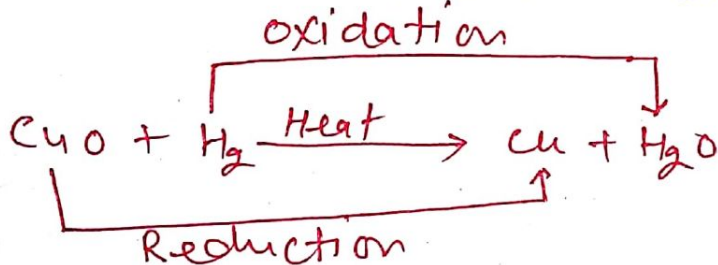 oxidation
CuO + H₂ Heat → Cu + H₂O
Reduction